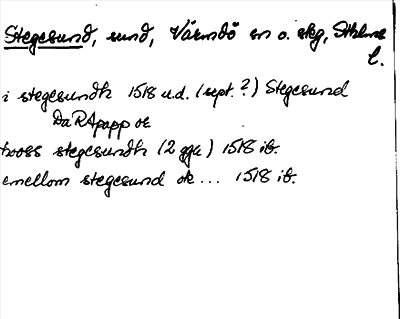 Stegesund, sund, Värmdö sn o. skg, Sthlms
l.
i stegesundh 1518 u.d. (sept.?) Stegesund
DaRApapp ok
hooss stegesundh (2 ggr) 1518 ib.
emellom stegesund ok ... 1518 ib.